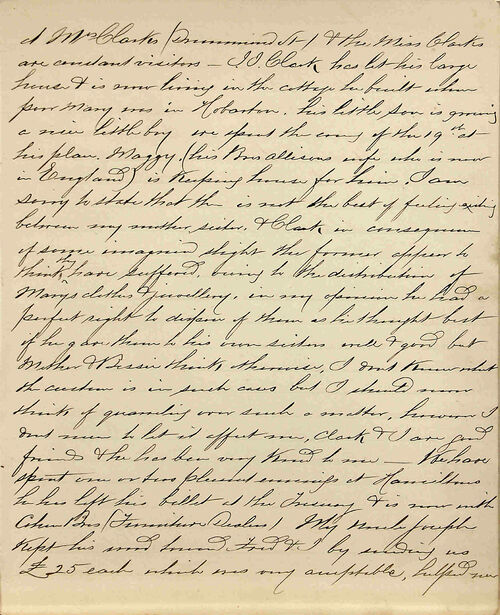 at Mrs Clarks (Drummond St) & the Miss Clarks
are constant visitors — J.J. Clark has let his large
house & is now living in the cottage he built when
poor Mary was in Hobarton, his little son is growing
a nice little boy we spent the evng of the 19th at
his place, Maggy, (his Bros wife who is now
in England) is keeping house for him, I am
sorry to state that there is not the best of feeling existing
between my mother, sister, & Clark in consequence
of some imagined slight the former appear to
think they have suffered, owing to the distribution of
Marys clothes & jewellery, in my opinion he had a
perfect right to dispose of them as he thought best
if he gave them to his own sisters well & good but
Mother & Bessie think otherwise, I dont know what
the custom is in such cases but I should never
think of quarreling over such a matter, however I
dont mean to let it affect me, Clark & I are good
friends & he has been very kind to me — We have
spent one or two pleasant evenings at Hamiltons
he has left his billet at the Treasury & is now with
Bros (Furniture Dealers) My Uncle Joseph
kept his word toward Fred & I by sending us
£25 each which was very acceptable, helped me